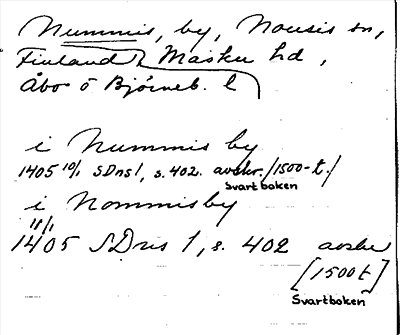 Nummis, by, Nousis sn,
Finland Masku hd,
Åbo o Björneb. l
i Nummis by
1405 10/1 SDns1, s. 402. avskr. /1500-t./
Svartboken
i Nommisby
11/1
1405 SDns 1, s. 402 avskr
[1500 t]
Svartboken